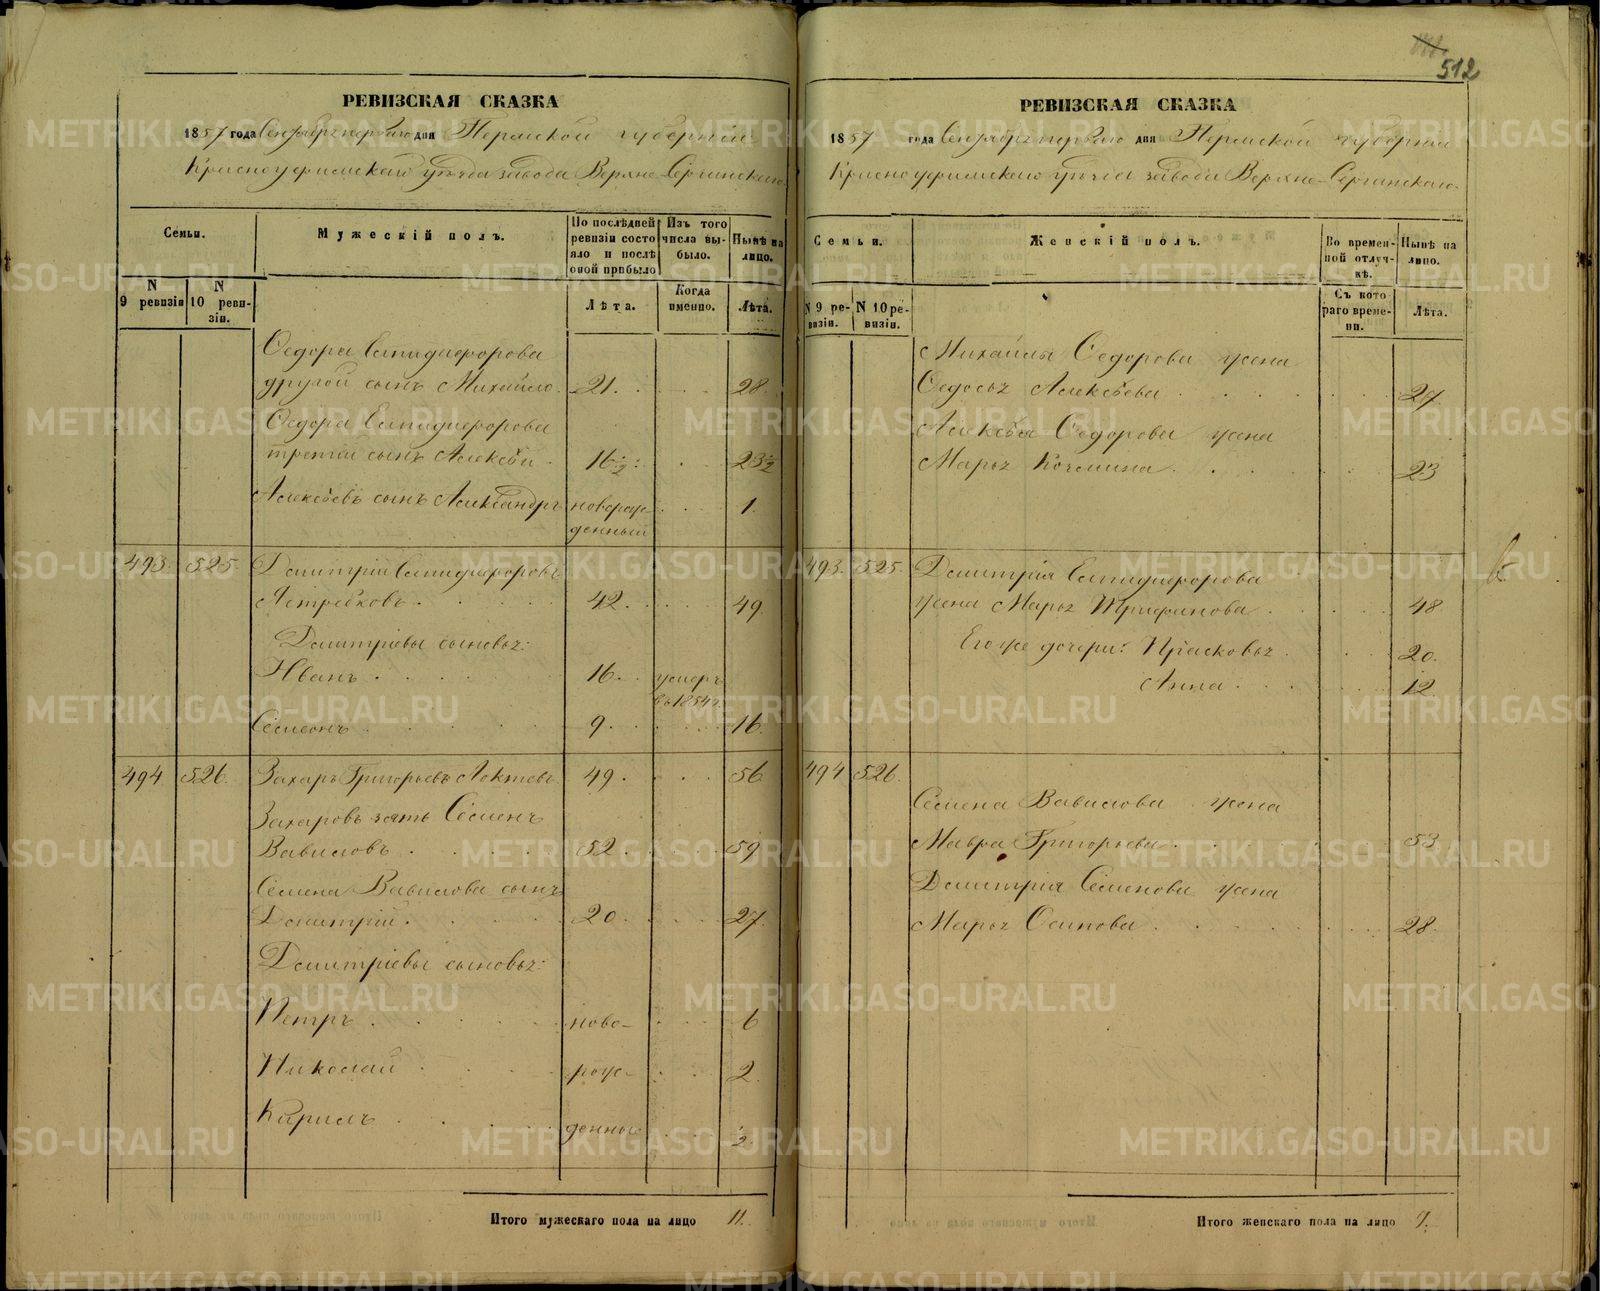 512
РЕВИЗСКАЯ СКАЗКА
1857 года Сентября первого дня Пермской губернии
Красноуфимскаго уѣзда завода Верхне-Сергинскаго
Семьи.
Мужескій полъ.
По послѣдней ревизіи состояло и послѣ оной прибыло
Изъ того числа выбыло.
Нынѣ на лицо.
N 9 ревизіи
N 10 ревизіи.
Лѣта.
Когда именно.
Лѣта.
Ѳедора Елпидифорова
другой сынъ Михайло. 21. 28.
Ѳедора Елпидифорова
третій сынъ Алексѣй. 16½. 23½
Алексѣевъ сынъ Александръ новорож- 1.
денный
493. 525. Дмитрій Елпидифоровъ
Ястребковъ. 42. 49.
Дмитріевы сыновья:
Иванъ. 16. умеръ
въ 1854 г.
Семенъ. 9. 16.
494 526. Захаръ Григорьевъ Локтевъ 49. 56
Захаровъ зять Семенъ
Вавиловъ. 52. 59.
Семена Вавилова сынъ
Дмитрій. 20. 27.
Дмитріевы сыновья:
Петръ. ново- 6
Николай рож- 2.
Кирилъ денны ½.
Итого мужескаго пола на лицо 11.
РЕВИЗСКАЯ СКАЗКА
1857 года Сентября первого дня Пермской губернии
Красноуфимскаго уѣзда завода Верхне-Сергинскаго
Семьи.
Женскій полъ.
Во временной отлучкѣ.
Нынѣ на лицо.
N 9 ревизіи.
N 10 ревизіи.
Съ котораго времени.
Лѣта.
Михайлы Ѳедорова жена
Ѳедосья Алексѣева. 27.
Алексѣя Ѳедорова жена
Марья Козмина. 23
493. 525. Дмитрія Елпидифорова
жена Марья Трифанова. 48
Его же дочери: Прасковья. 20.
Анна. 12
494 526.
Семена Вавилова жена
Мавра Григорьева. 53.
Дмитрія Семенова жена
Марья Осипова. 28.
Итого женскаго пола на лицо 7.
METRIKI.GASO-URAL.RU